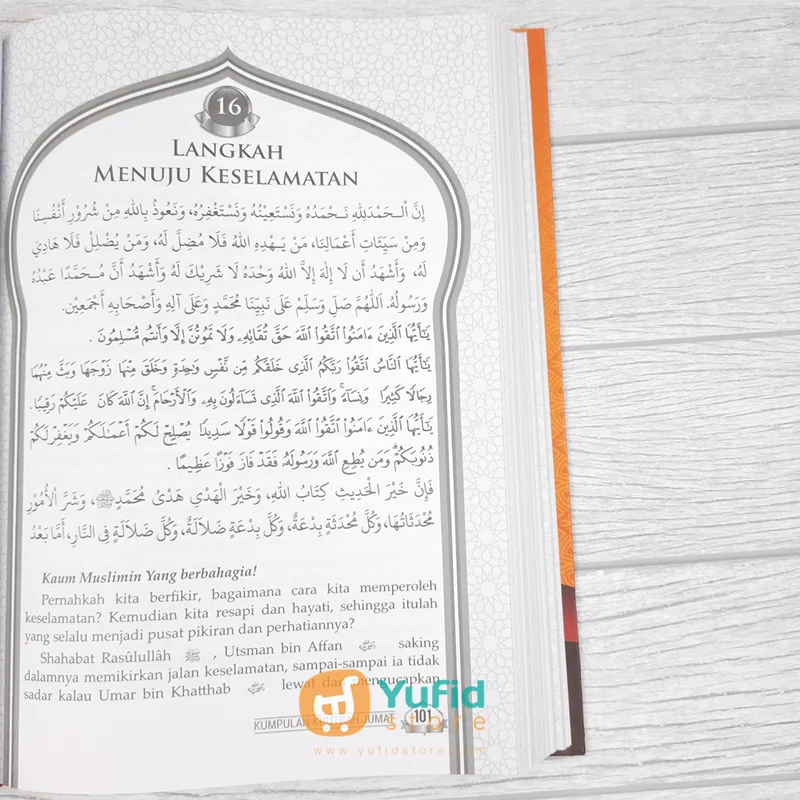 16
LANGKAH
MENUJU KESELAMATAN
إِنَّ الْحَمْدَ لِلهِ نَحْمَدُهُ وَنَسْتَعِينُهُ وَنَسْتَغْفِرُهُ، وَنَعُوذُ بِاللهِ مِنْ شُرُوْرِ أَنْفُسِنَا
وَمِنْ سَيِّئَاتِ أَعْمَالِنَا، مَنْ يَهْدِهِ اللهُ فَلَا مُضِلَّ لَهُ، وَمَنْ يُضْلِلْ فَلَا هَادِيَ
لَهُ، وَأَشْهَدُ أَن لَا إِلٰهَ إِلاَّ اللهُ وَحْدَهُ لَا شَرِيْكَ لَهُ وَأَشْهَدُ أَنَّ مُحَمَّدًا عَبْدُهُ
وَرَسُولُهُ. اَللَّهُمَّ صَلِّ وَسَلِّمْ عَلَى نَبِيِّنَا مُحَمَّدٍ وَعَلَى آلِهِ وَأَصْحَابِهِ أَجْمَعِيْن.
يَٰٓأَيُّهَا ٱلَّذِينَ ءَامَنُوا۟ ٱتَّقُوا۟ ٱللَّهَ حَقَّ تُقَاتِهِۦ وَلَا تَمُوتُنَّ إِلَّا وَأَنتُم مُّسْلِمُونَ .
يَٰٓأَيُّهَا ٱلنَّاسُ ٱتَّقُوا۟ رَبَّكُمُ ٱلَّذِى خَلَقَكُم مِّن نَّفْسٍ وَٰحِدَةٍ وَخَلَقَ مِنْهَا زَوْجَهَا وَبَثَّ مِنْهُمَا
رِجَالًا كَثِيرًا وَنِسَآءً ۚ وَٱتَّقُوا۟ ٱللَّهَ ٱلَّذِى تَسَآءَلُونَ بِهِۦ وَٱلْأَرْحَامَ ۚ إِنَّ ٱللَّهَ كَانَ عَلَيْكُمْ رَقِيبًا.
يَٰٓأَيُّهَا ٱلَّذِينَ ءَامَنُوا۟ ٱتَّقُوا۟ ٱللَّهَ وَقُولُوا۟ قَوْلًا سَدِيدًا يُصْلِحْ لَكُمْ أَعْمَٰلَكُمْ وَيَغْفِرْ لَكُمْ
ذُنُوبَكُمْ ۗ وَمَن يُطِعِ ٱللَّهَ وَرَسُولَهُۥ فَقَدْ فَازَ فَوْزًا عَظِيمًا .
فَإِنَّ خَيْرَ الْحَدِيثِ كِتَابُ اللهِ، وَخَيْرَ الْهَدْيِ هَدْيُ مُحَمَّدٍ ﷺ، وَشَرَّ الْأُمُوْرِ
مُحْدَثَاتُهَا، وَكُلَّ مُحْدَثَةٍ بِدْعَةٌ، وَكُلَّ بِدْعَةٍ ضَلَالَةٌ، وَكُلَّ ضَلَالَةٍ فِي النَّارِ، أَمَّا بَعْدُ
Kaum Muslimin Yang berbahagia!
Pernahkah kita berfikir, bagaimana cara kita memperoleh
keselamatan? Kemudian kita resapi dan hayati, sehingga itulah
yang selalu menjadi pusat pikiran dan perhatiannya?
Shahabat Rasûlullâh ﷺ , Utsman bin Affan saking
dalamnya memikirkan jalan keselamatan, sampai-sampai ia tidak
sadar kalau Umar bin Khatthab lewat dan mengucapkan
KUMPULAN KHUTBAH JUMAT 101
Yufid
store
www.yufidstore.com